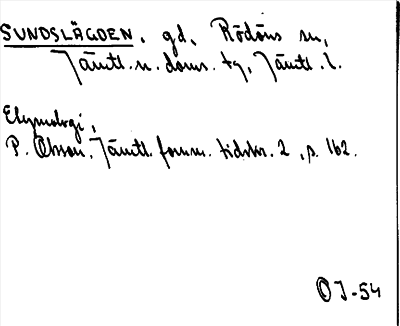 SUNDSLÄGDEN, gd, Rödöns sn,
Jämtl. n. doms. tg, Jämtl. l.
Etymologi,
P. Olsson, Jämtl. fornm. tidskr. 2, s. 162.
OJ-54